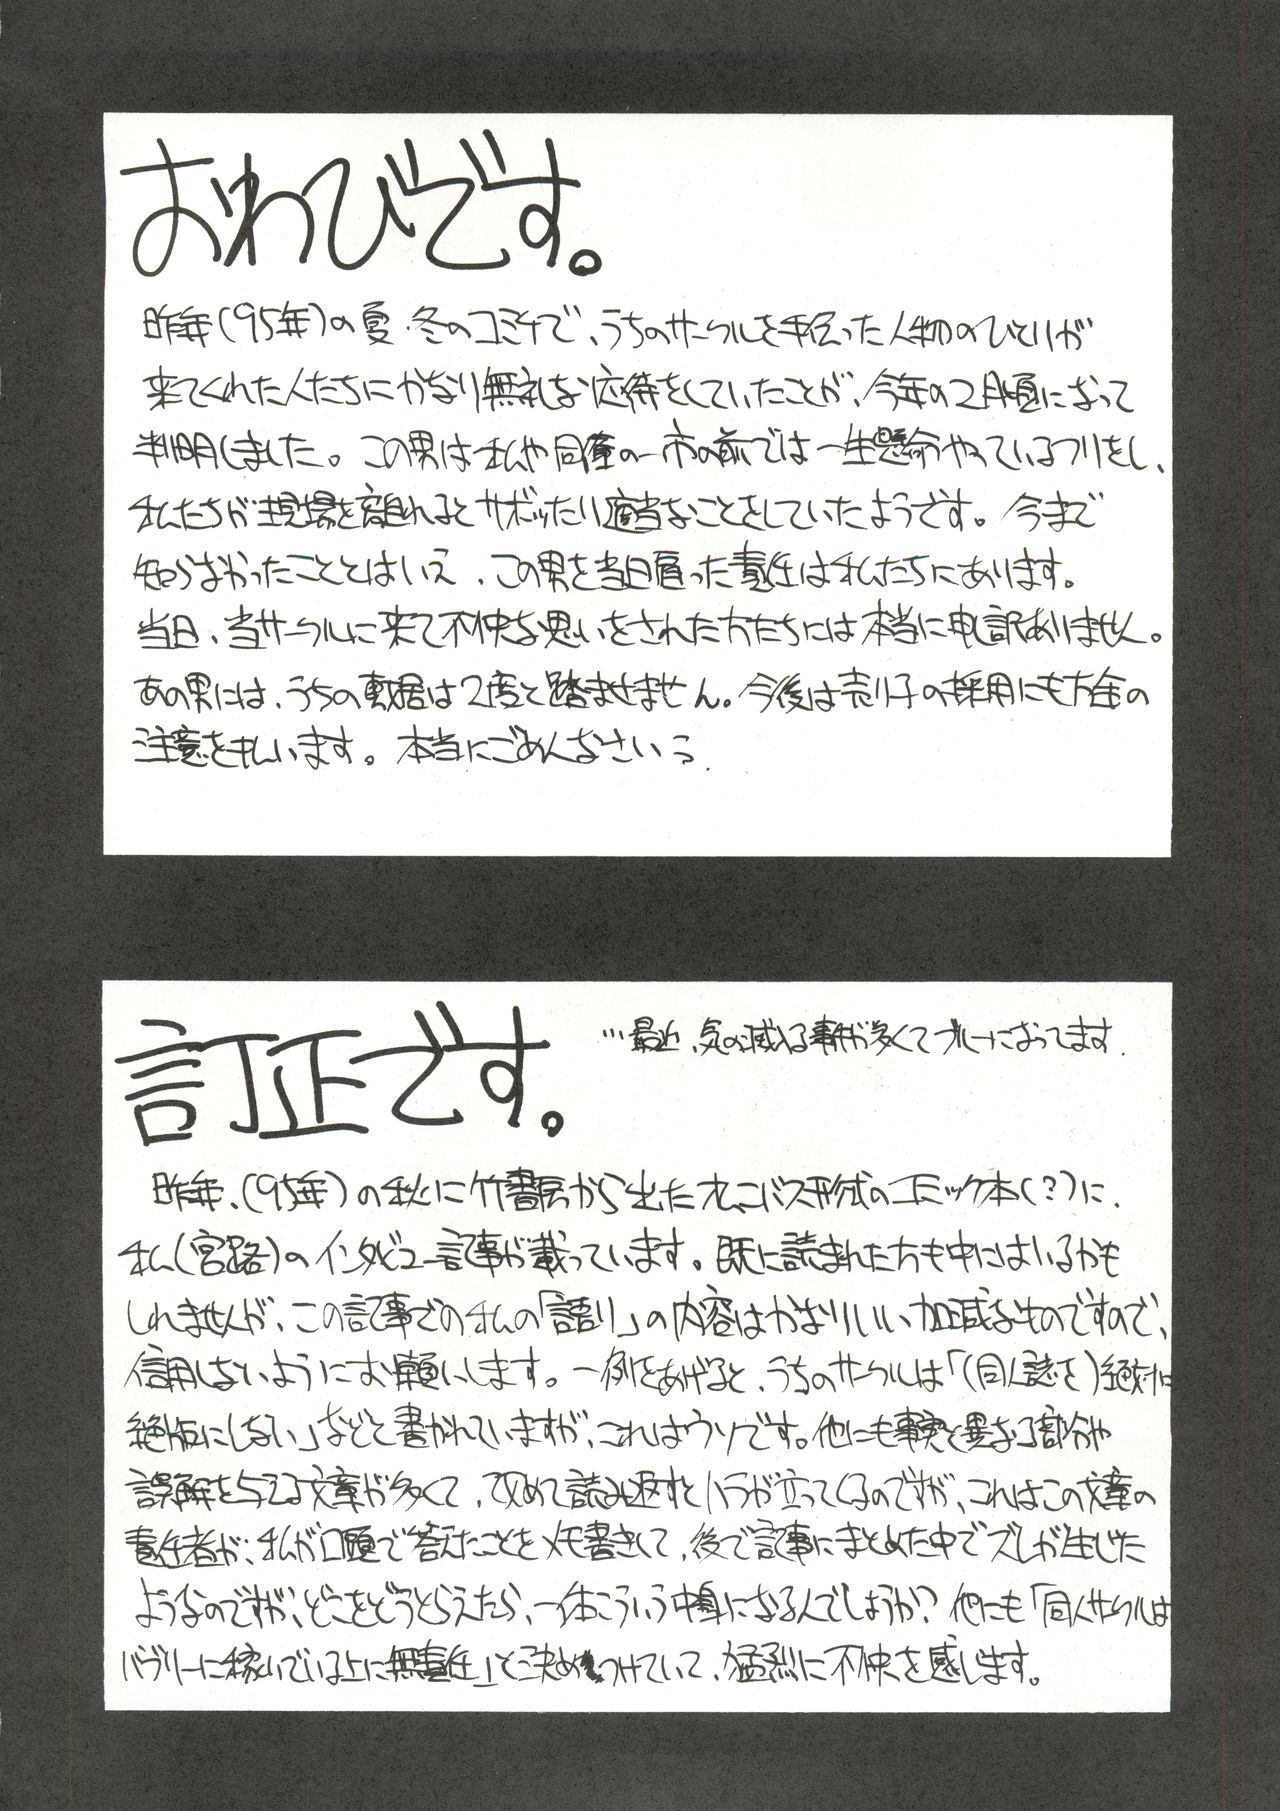 おわびです。
昨年(95年)の夏・冬のコミケで、うちのサークルを手伝った人物のひとりが
来てくれた人たちにかなり無礼な応待をしていたことが、今年の2月頃になって
判明しました。この男は私や同僚の一市の前では一生懸命やっているフリをし、
私たちが現場を離れるとサボッたり適当なことをしていたようです。今まで
知らなかったこととはいえ、この男を当日雇った責任は私たちにあります。
当日、当サークルに来て不快な思いをされた方たちには本当に申し訳ありません。
あの男には、うちの敷居は2度と踏ませません。今後は売り子の採用にも万全の
注意を払います。本当にごめんなさいう.
訂正です。
…最近、気の滅入る事件が多くてブルーになってます.
昨年、(95年)の秋に竹書房から出たオムニバス形式のコミック本(?)に、
私(宮路)のインタビュー記事が載っています。既に読まれた方も中にはいるかも
しれませんが、この記事での私の「語り」の内容はかなりいい加減なものですので、
信用しないようにお願いします。一例をあげると、うちのサークルは「(同人誌を)絶対に
絶版にしない」などと書かれていますが、これはウソです。他にも事実と異なる部分や
誤解を与える文章が多くて、改めて読み返すとハラが立ってくるのですが、これはこの文章の
責任者が、私が口頭で答えたことをメモ書きして、後で記事にまとめた中でズレが生じた
ようなのですが、どこをどうとらえたら、一体こういう中身になるんでしょうか?他にも「同人サークルは
バブリーに稼いでいる上に無責任」と決めつけていて、猛烈に不快を感じます。